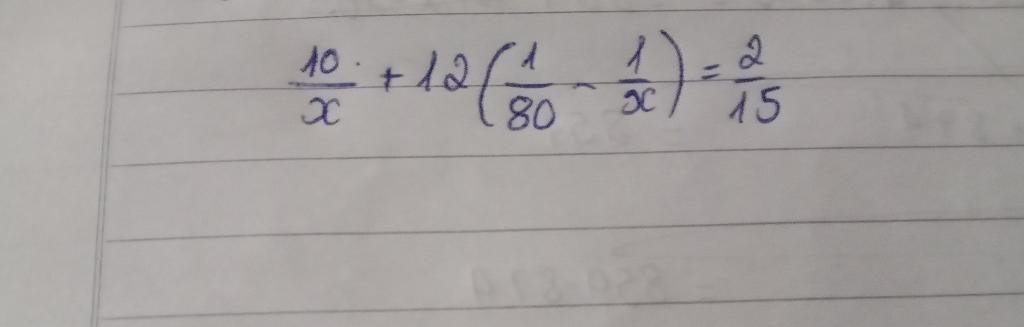 10/x + 12(1/80 - 1/x) = 2/15